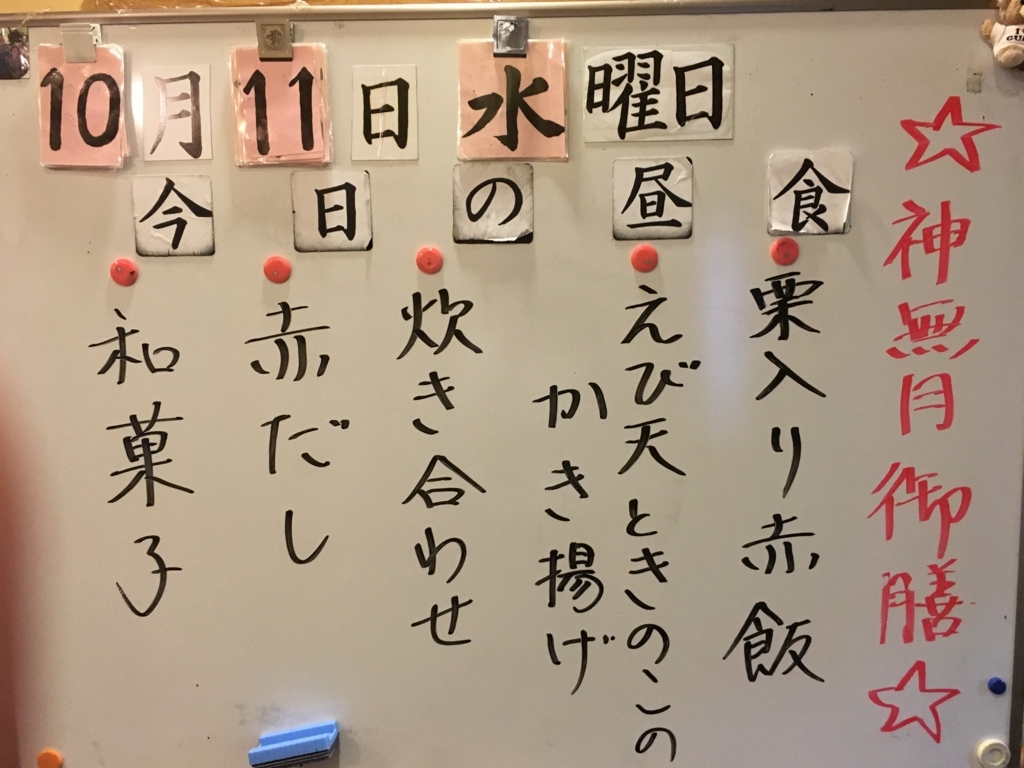 10月11日水曜日
今日の昼食
☆神無月御膳☆
栗入り赤飯
えび天ときのこの
かき揚げ
炊き合わせ
赤だし
和菓子